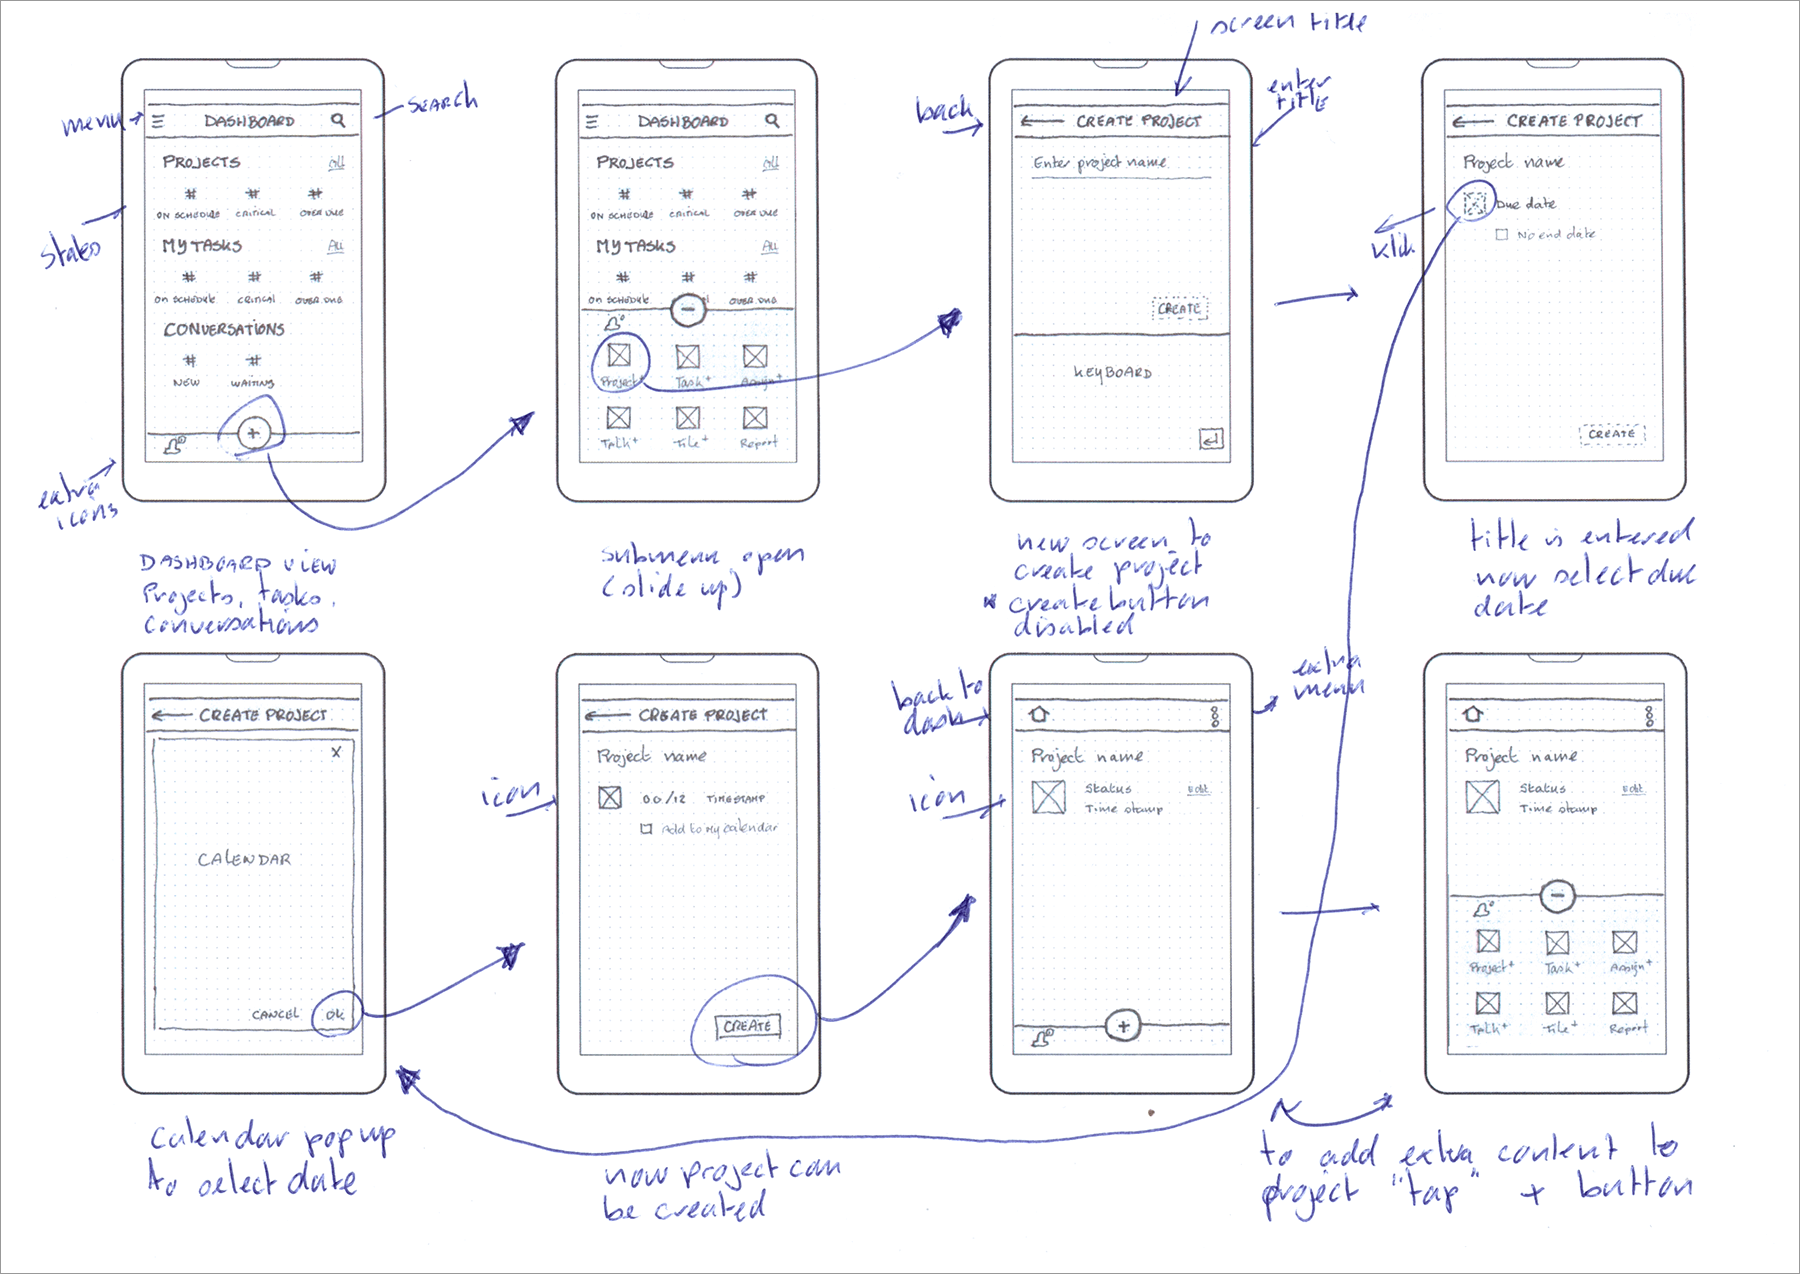 screen title
menu
SEARCH
back
enter
title
DASHBOARD
PROJECTS
All
# # #
ON SCHEDULE CRITICAL OVER DUE
MY TASKS
All
# # #
ON SCHEDULE CRITICAL OVER DUE
CONVERSATIONS
# #
NEW WAITING
+
states
extra
icons
DASHBOARD VIEW
Projects, tasks,
conversations
DASHBOARD
PROJECTS
All
# # #
ON SCHEDULE CRITICAL OVER DUE
MY TASKS
All
# # #
ON SCHEDULE OVER DUE
-
Project+ Task+ Assign+
Talk+ File+ Report
submenu open
(slide up)
CREATE PROJECT
Enter project name
CREATE
KEYBOARD
new screen to
create project
* create button
disabled
CREATE PROJECT
Project name
Due date
No end date
klik
CREATE
title is entered
now select due
date
CREATE PROJECT
X
CALENDAR
CANCEL OK
calendar pop up
to select date
CREATE PROJECT
Project name
icon
00/12 TIMESTAMP
Add to My calendar
CREATE
now project can
be created
back to
dash
extra
menu
Project name
icon
Status Edit
Time stamp
+
Project name
Status Edit
Time stamp
-
Project+ Task+ Assign+
Talk+ File+ Report
to add extra content to
project "tap" + button